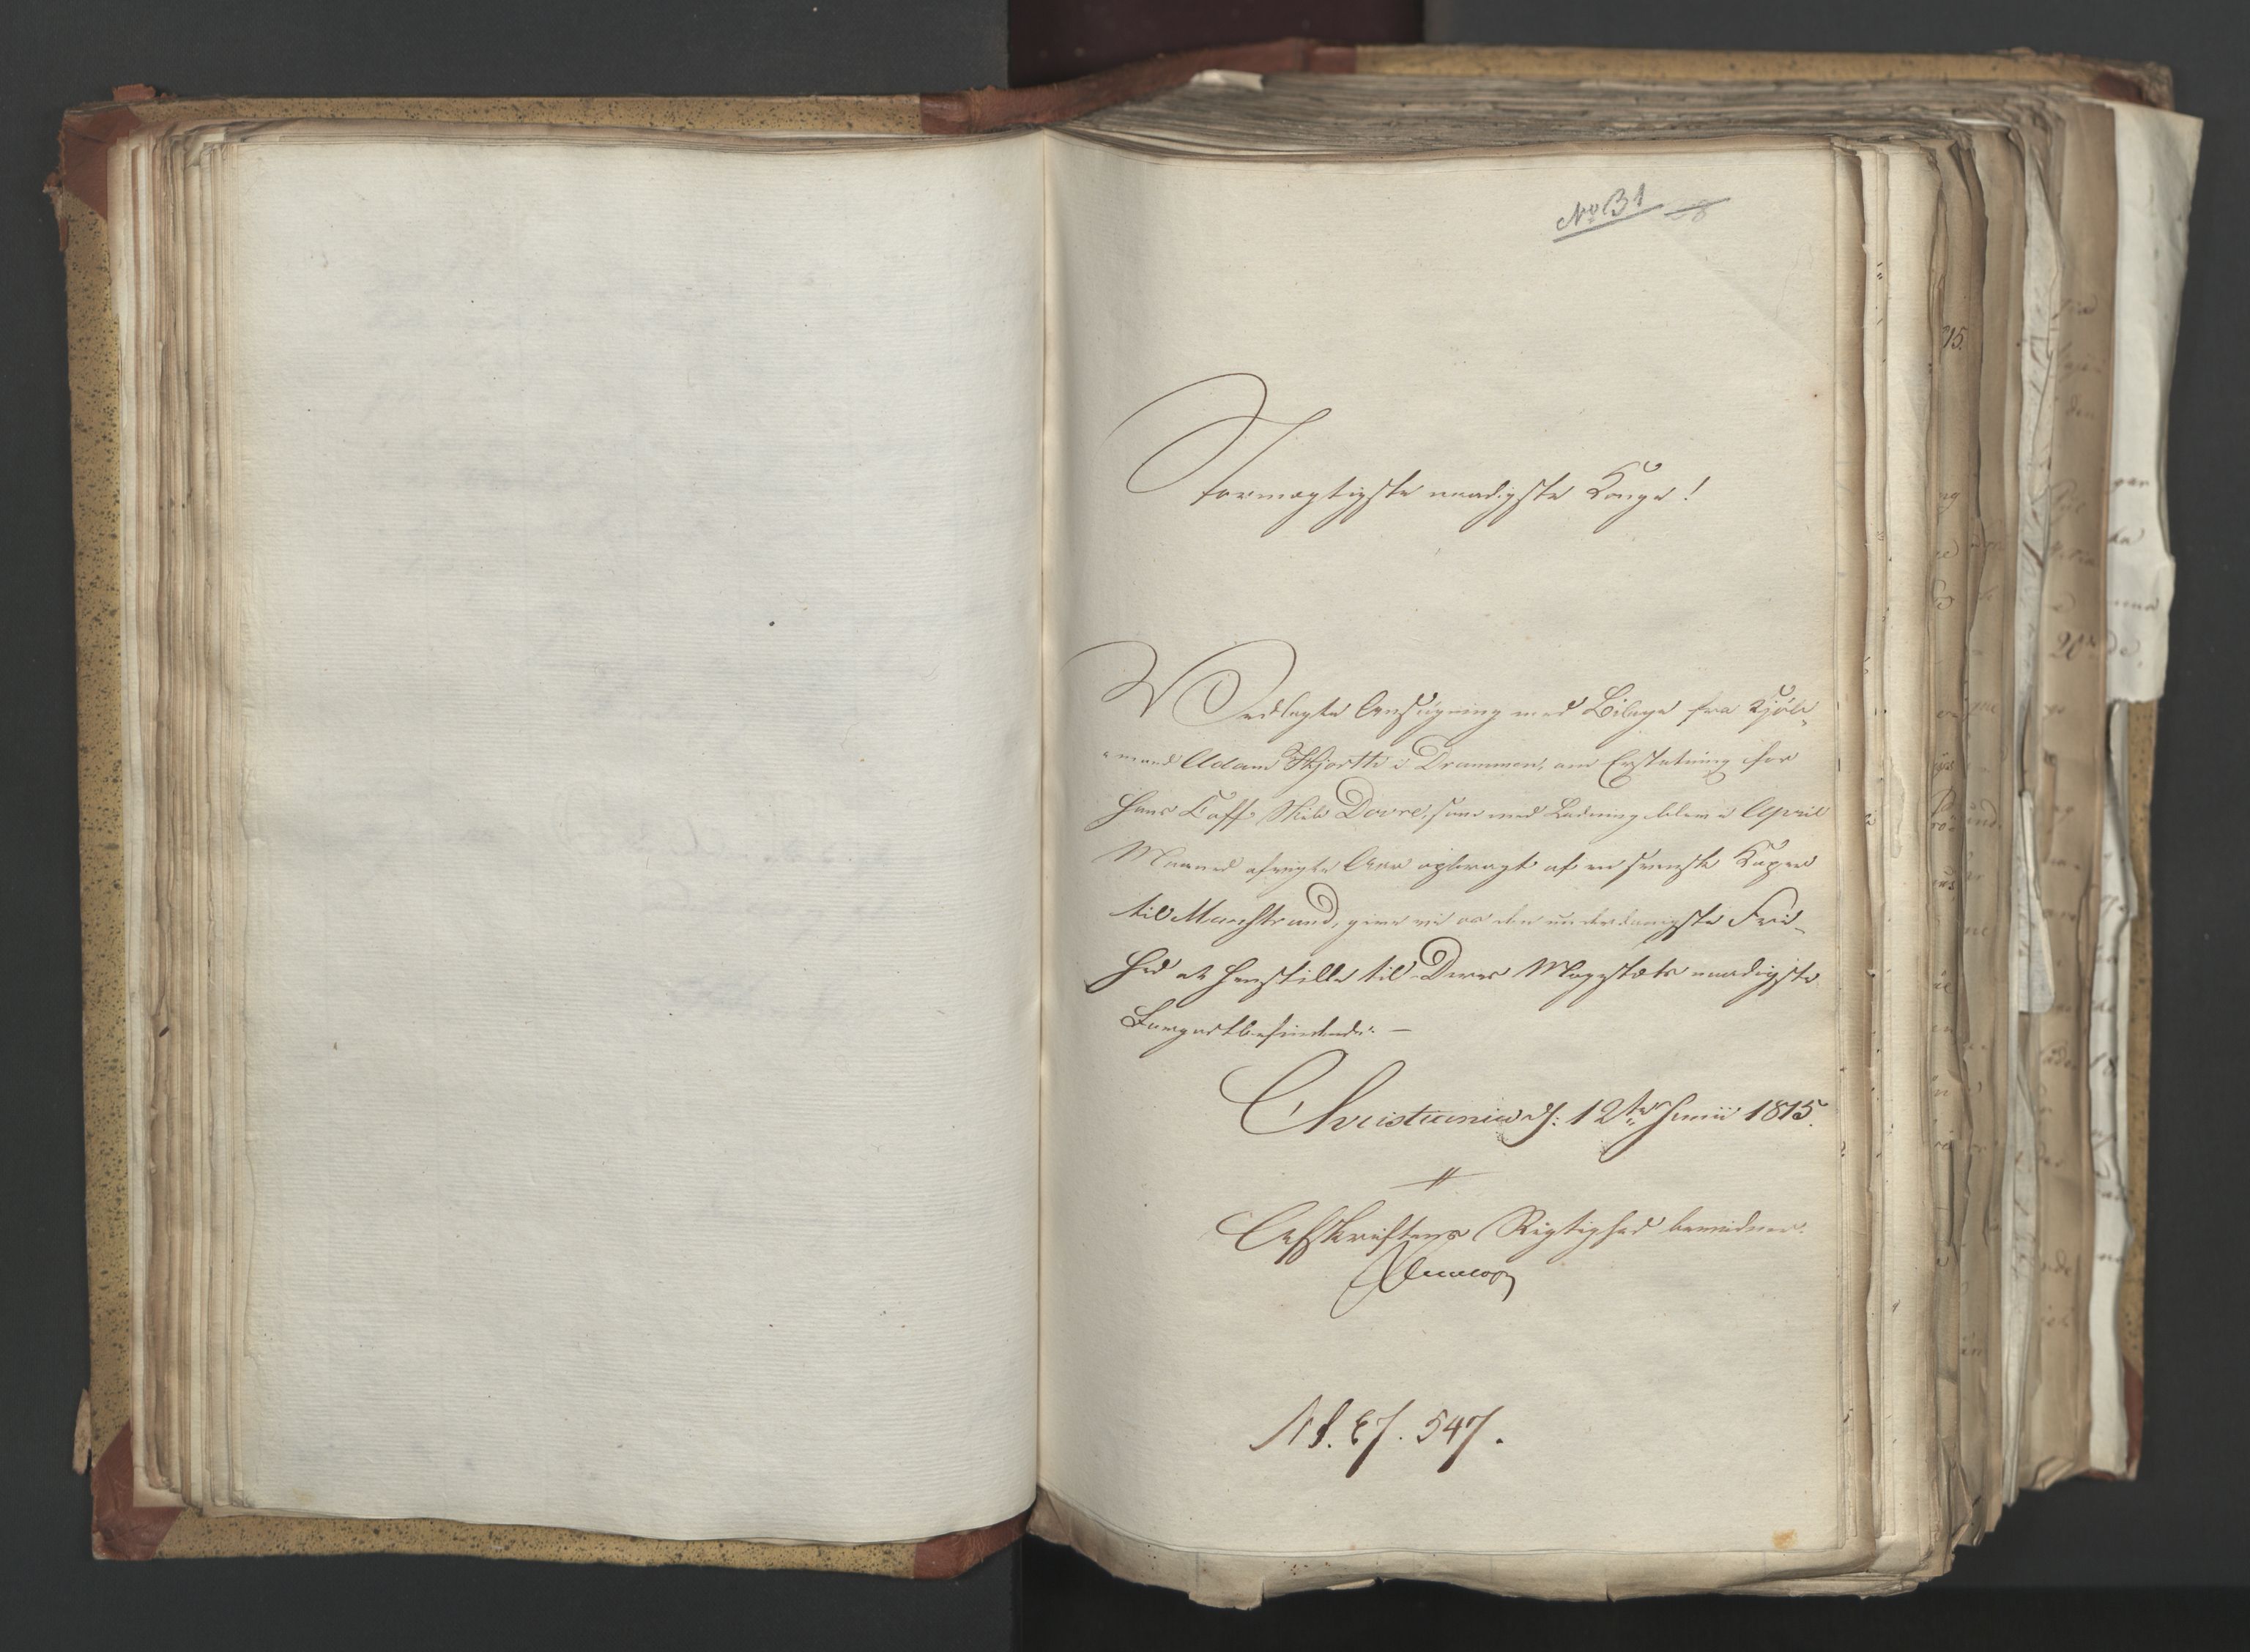 No 31
Stormægtigste naadigste Konge!
Vedlagte Ansøgning med Bilage fra Kjøb-
mand Adam Hjorth i Drammen, om Erstatning for
hans Skib Dovre, som med Ladning blev i April
Maaned afvigte Aar opbragt af en svensk Kaper
til Marstrand, give vi os den underdanigste Fri-
hed at henstille til Deres Majestæts naadigste
Forgodtbefindende. —
Christiania d: 12te Junii 1815.
Afskriftens Rigtighed bevidner.
547.